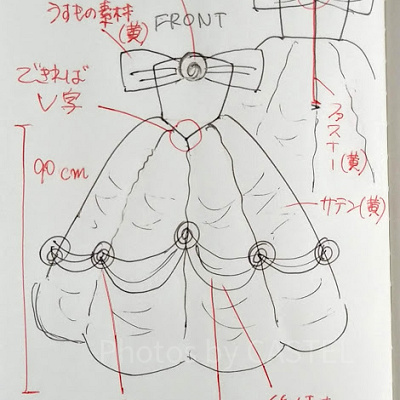 うすもの素材
(黄)
FRONT
できれば
V字
90cm
ファスナー(黄)
サテン(黄)
Photo by CASTEL